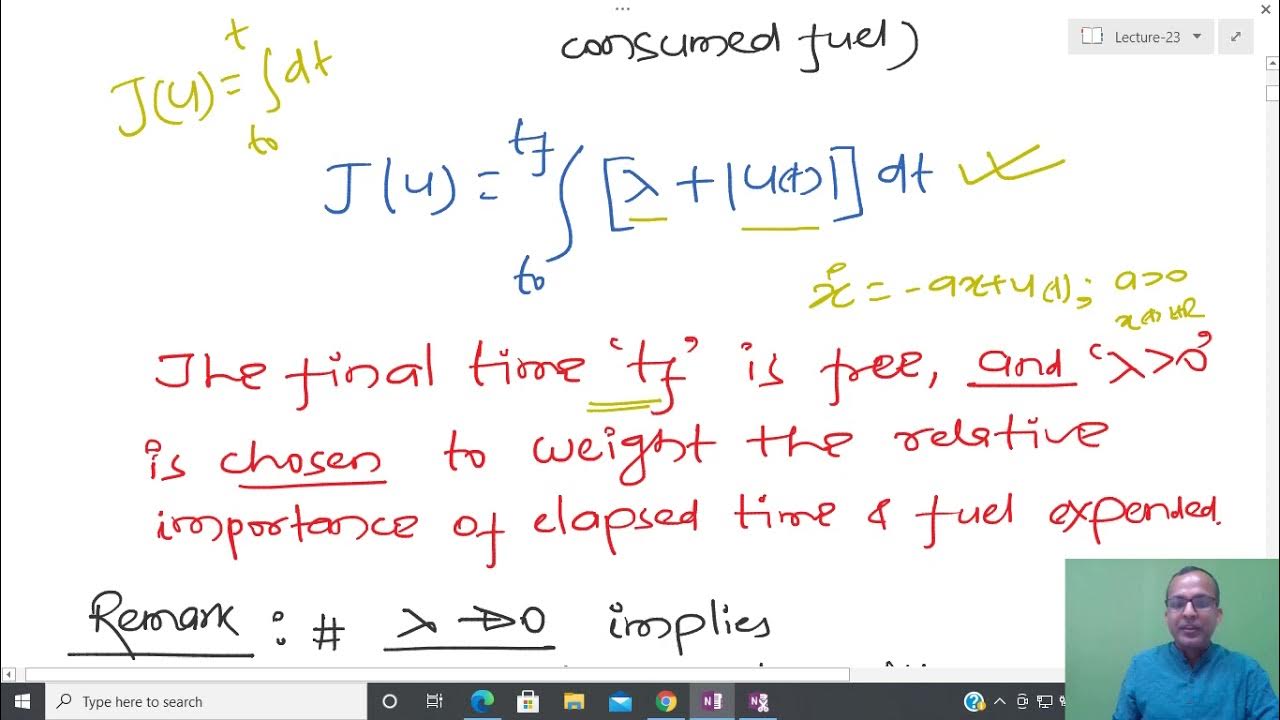 consumed fuel)
Lecture-23
J(u) = ∫ dt
t
to
J(u) = ∫ [λ + |u(t)|] dt
tf
to
ẋ = -ax+u(t); a>0
The final time 'tf' is free, and 'λ>0'
is chosen to weight the relative
importance of elapsed time & fuel expended.
Remark : # λ → 0 implies
Type here to search